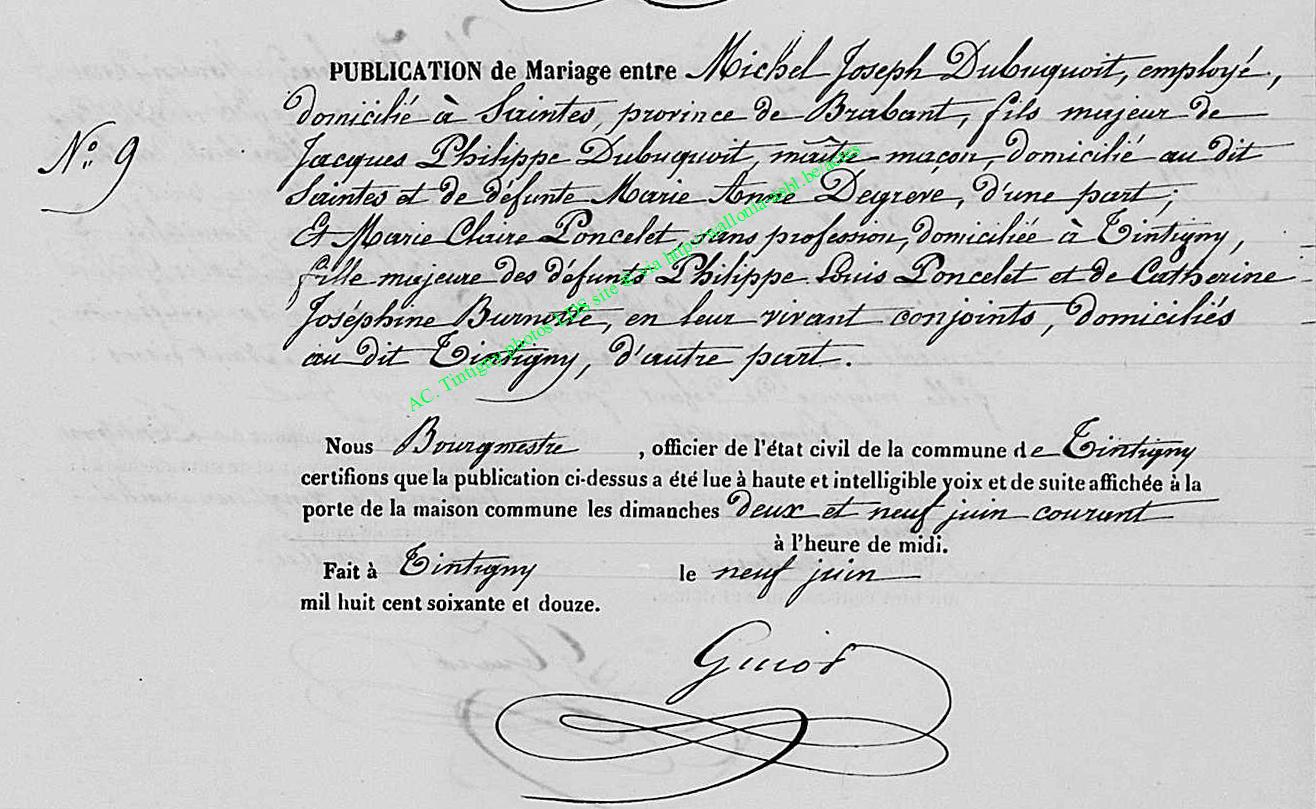 PUBLICATION de Mariage entre Michel Joseph Dubuquoit, employé,
domicilié à Saintes, province de Brabant, fils majeur de
N.o 9
Jacques Philippe Dubuquoit, maître-maçon, domicilié au dit
Saintes et de défunte Marie Anne Degrève, d'une part;
Et Marie Claire Poncelet, sans profession, domiciliée à Tintigny,
fille majeure des défunts Philippe Louis Poncelet et de Catherine
Joséphine Burnotte, en leur vivant conjoints, domiciliés
au dit Tintigny, d'autre part.
AC. Tintigny photos LDS site @ via http://wallonia-asbl.be/actes
Nous Bourgmestre, officier de l'état civil de la commune de Tintigny
certifions que la publication ci-dessus a été lue à haute et intelligible voix et de suite affichée à la
porte de la maison commune les dimanches deux et neuf juin courant
à l'heure de midi.
Fait à Tintigny le neuf juin
mil huit cent soixante et douze.
Guiot